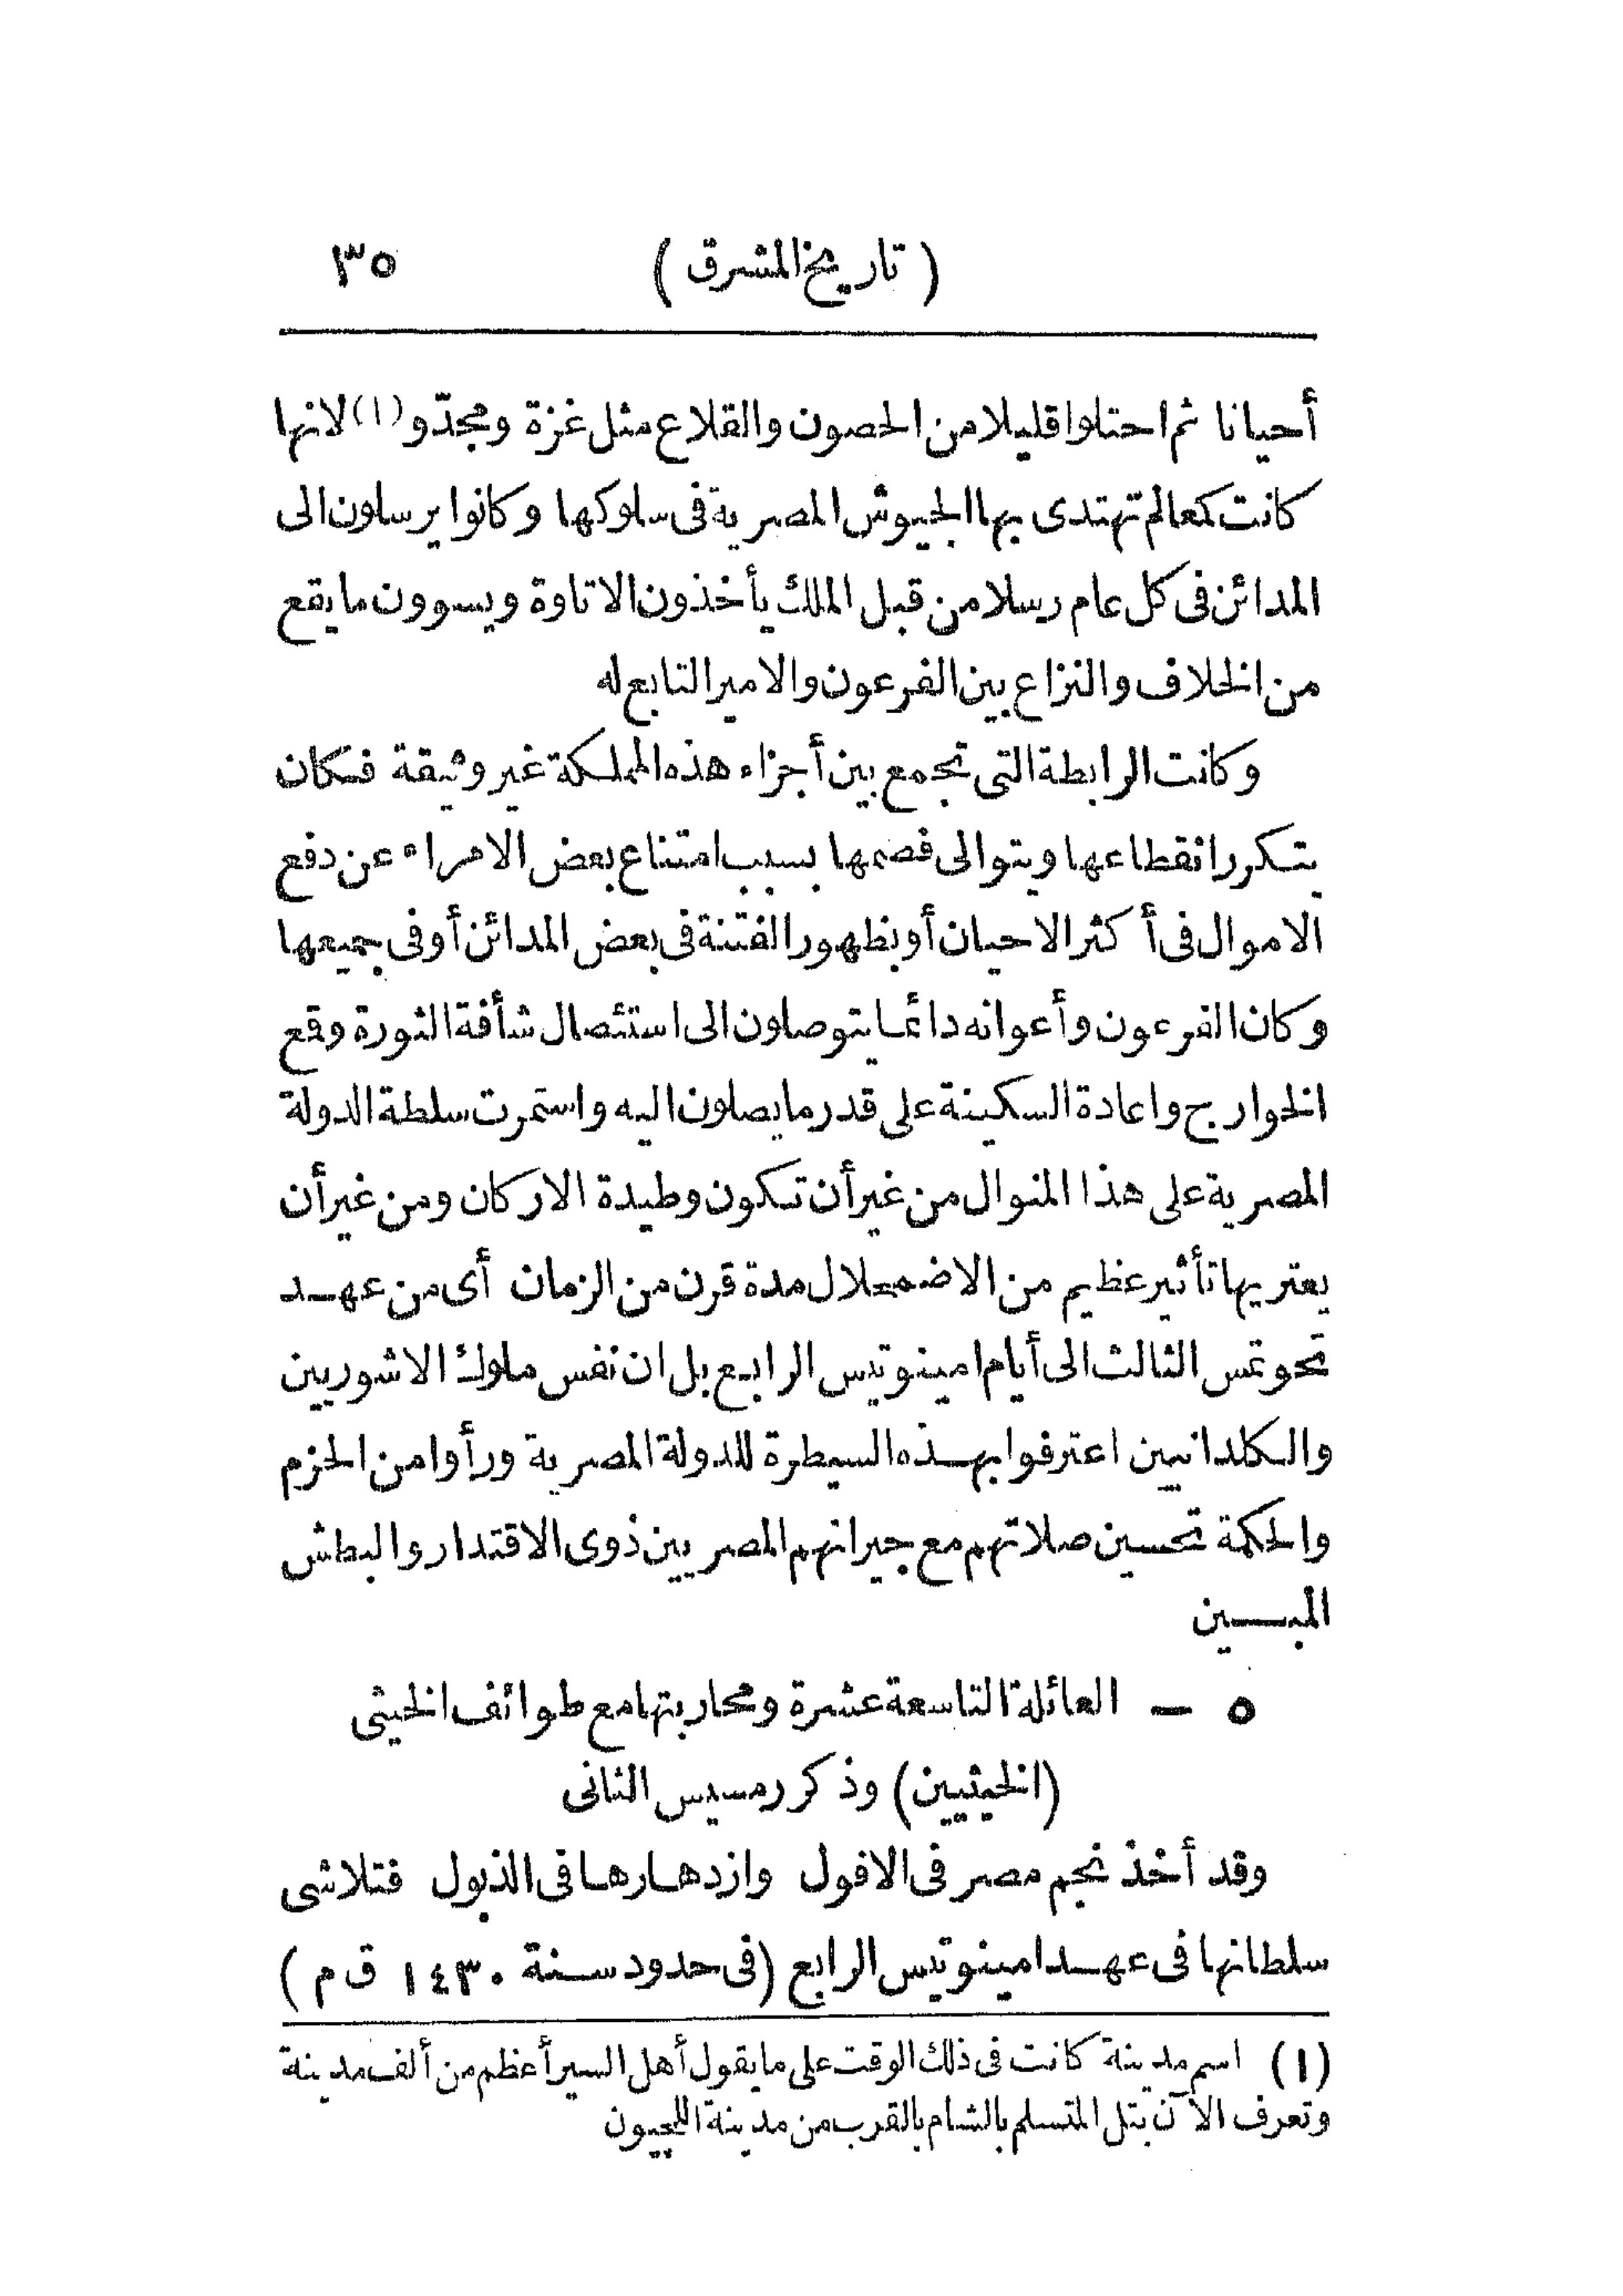 ( تاريخ المشرق ) ٣٥
أحيانا ثم احتلوا قليلا من الحصون والقلاع مثل غزة ومجدّو (١) لانها
كانت كمعالم تهتدى بها الجيوش المصرية فى سلوكها وكانوا يرسلون الى
المدائن فى كل عام رسلا من قبل الملك يأخذون الاتاوة ويسوون ما يقع
من الخلاف والنزاع بين الفرعون والامير التابع له
وكانت الرابطة التى تجمع بين أجزاء هذه المملكة غير وثيقة فكان
يتكرر انقطاعها ويتوالى فصمها بسبب امتناع بعض الامراء عن دفع
الاموال فى أكثر الاحيان أو بظهور الفتنة فى بعض المدائن أو فى جميعها
وكان الفرعون وأعوانه دائما يتوصلون الى استئصال شأفة الثورة وقمع
الخوارج واعادة السكينة على قدر ما يصلون اليه واستمرت سلطة الدولة
المصرية على هذا المنوال من غير أن تكون وطيدة الاركان ومن غير أن
يعتريها تأثير عظيم من الاضمحلال مدة قرن من الزمان أى من عهد
تحوتمس الثالث الى أيام امينوتيس الرابع بل ان نفس ملوك الاشوريين
والكلدانيين اعترفوا بهذه السيطرة للدولة المصرية ورأوا من الحزم
والحكمة تحسين صلاتهم مع جيرانهم المصريين ذوى الاقتدار والبطش
المبين
٥ – العائلة التاسعة عشرة ومحاربتها مع طوائف الخيثى
(الخيثيين) وذكر رمسيس الثانى
وقد أخذ نجم مصر فى الافول وازدهارها فى الذبول فتلاشى
سلطانها فى عهد امينوتيس الرابع (فى حدود سنة ١٤٣٠ ق م)
(١) اسم مدينة كانت فى ذلك الوقت على ما يقول أهل السير أعظم من ألف مدينة
وتعرف الآن بتل المتسلم بالشام بالقرب من مدينة اللجيون